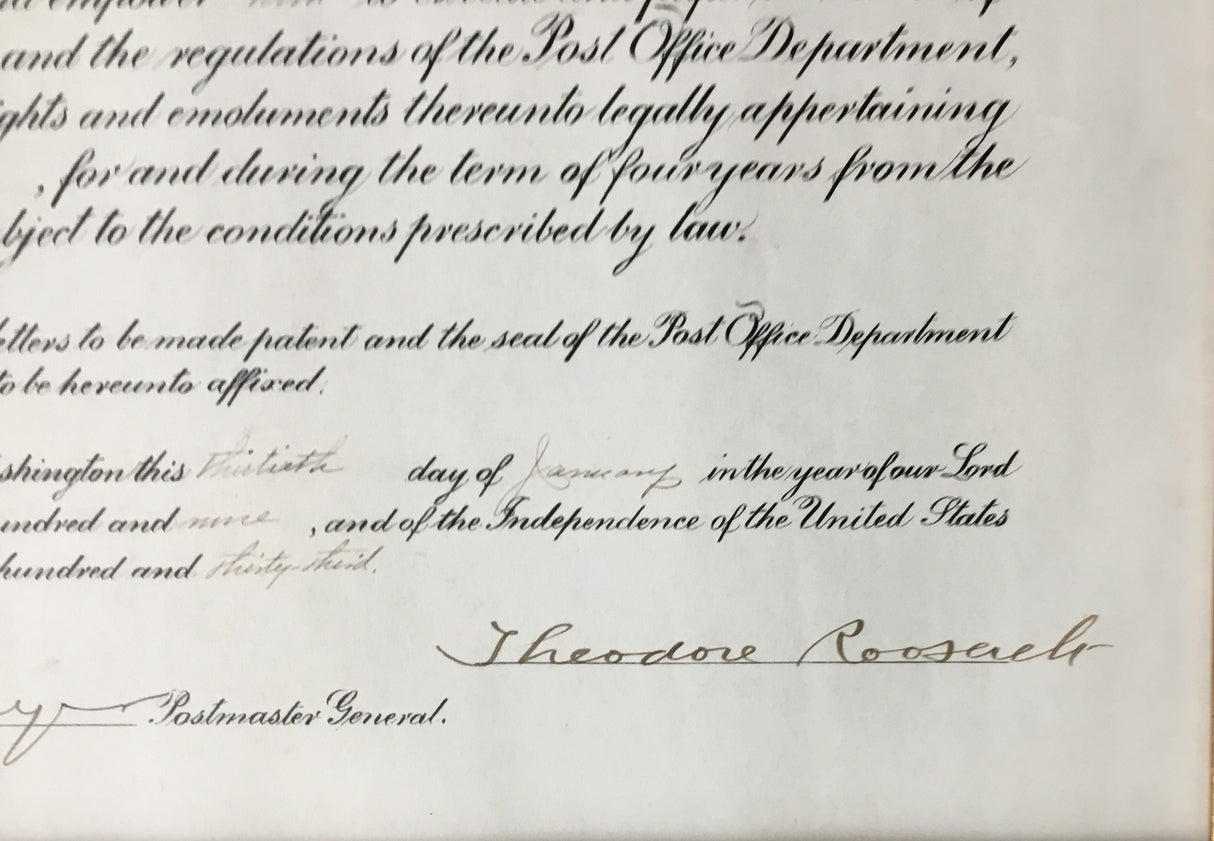 and empower him to execute and
and the regulations of the Post Office Department,
ghts and emoluments thereunto legally appertaining
, for and during the term of four years from the
bject to the conditions prescribed by law.
etters to be made patent and the seal of the Post Office Department
to be hereunto affixed.
shington this thirtieth day of January in the year of our Lord
undred and nine , and of the Independence of the United States
hundred and thirty-third.
Theodore Roosevelt
Postmaster General.